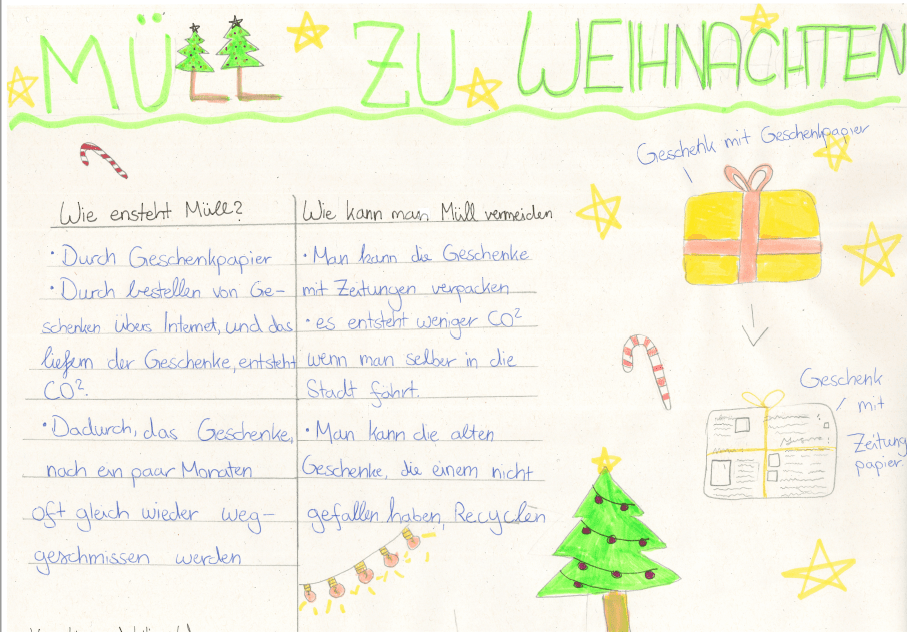 MÜLL ZU WEIHNACHTEN
Geschenk mit Geschenkpapier
Wie ensteht Müll?
· Durch Geschenkpapier
· Durch bestellen von Ge-
schenken übers Internet, und das
liefern der Geschenke, entsteht
CO².
· Dadurch, das Geschenke,
nach ein paar Monaten
oft gleich wieder weg-
geschmissen werden
Wie kann man Müll vermeiden
· Man kann die Geschenke
mit Zeitungen verpacken
· es entsteht weniger CO²
wenn man selber in die
Stadt fährt.
· Man kann die alten
Geschenke, die einem nicht
gefallen haben, Recyclen
Geschenk
mit
Zeitung
papier.